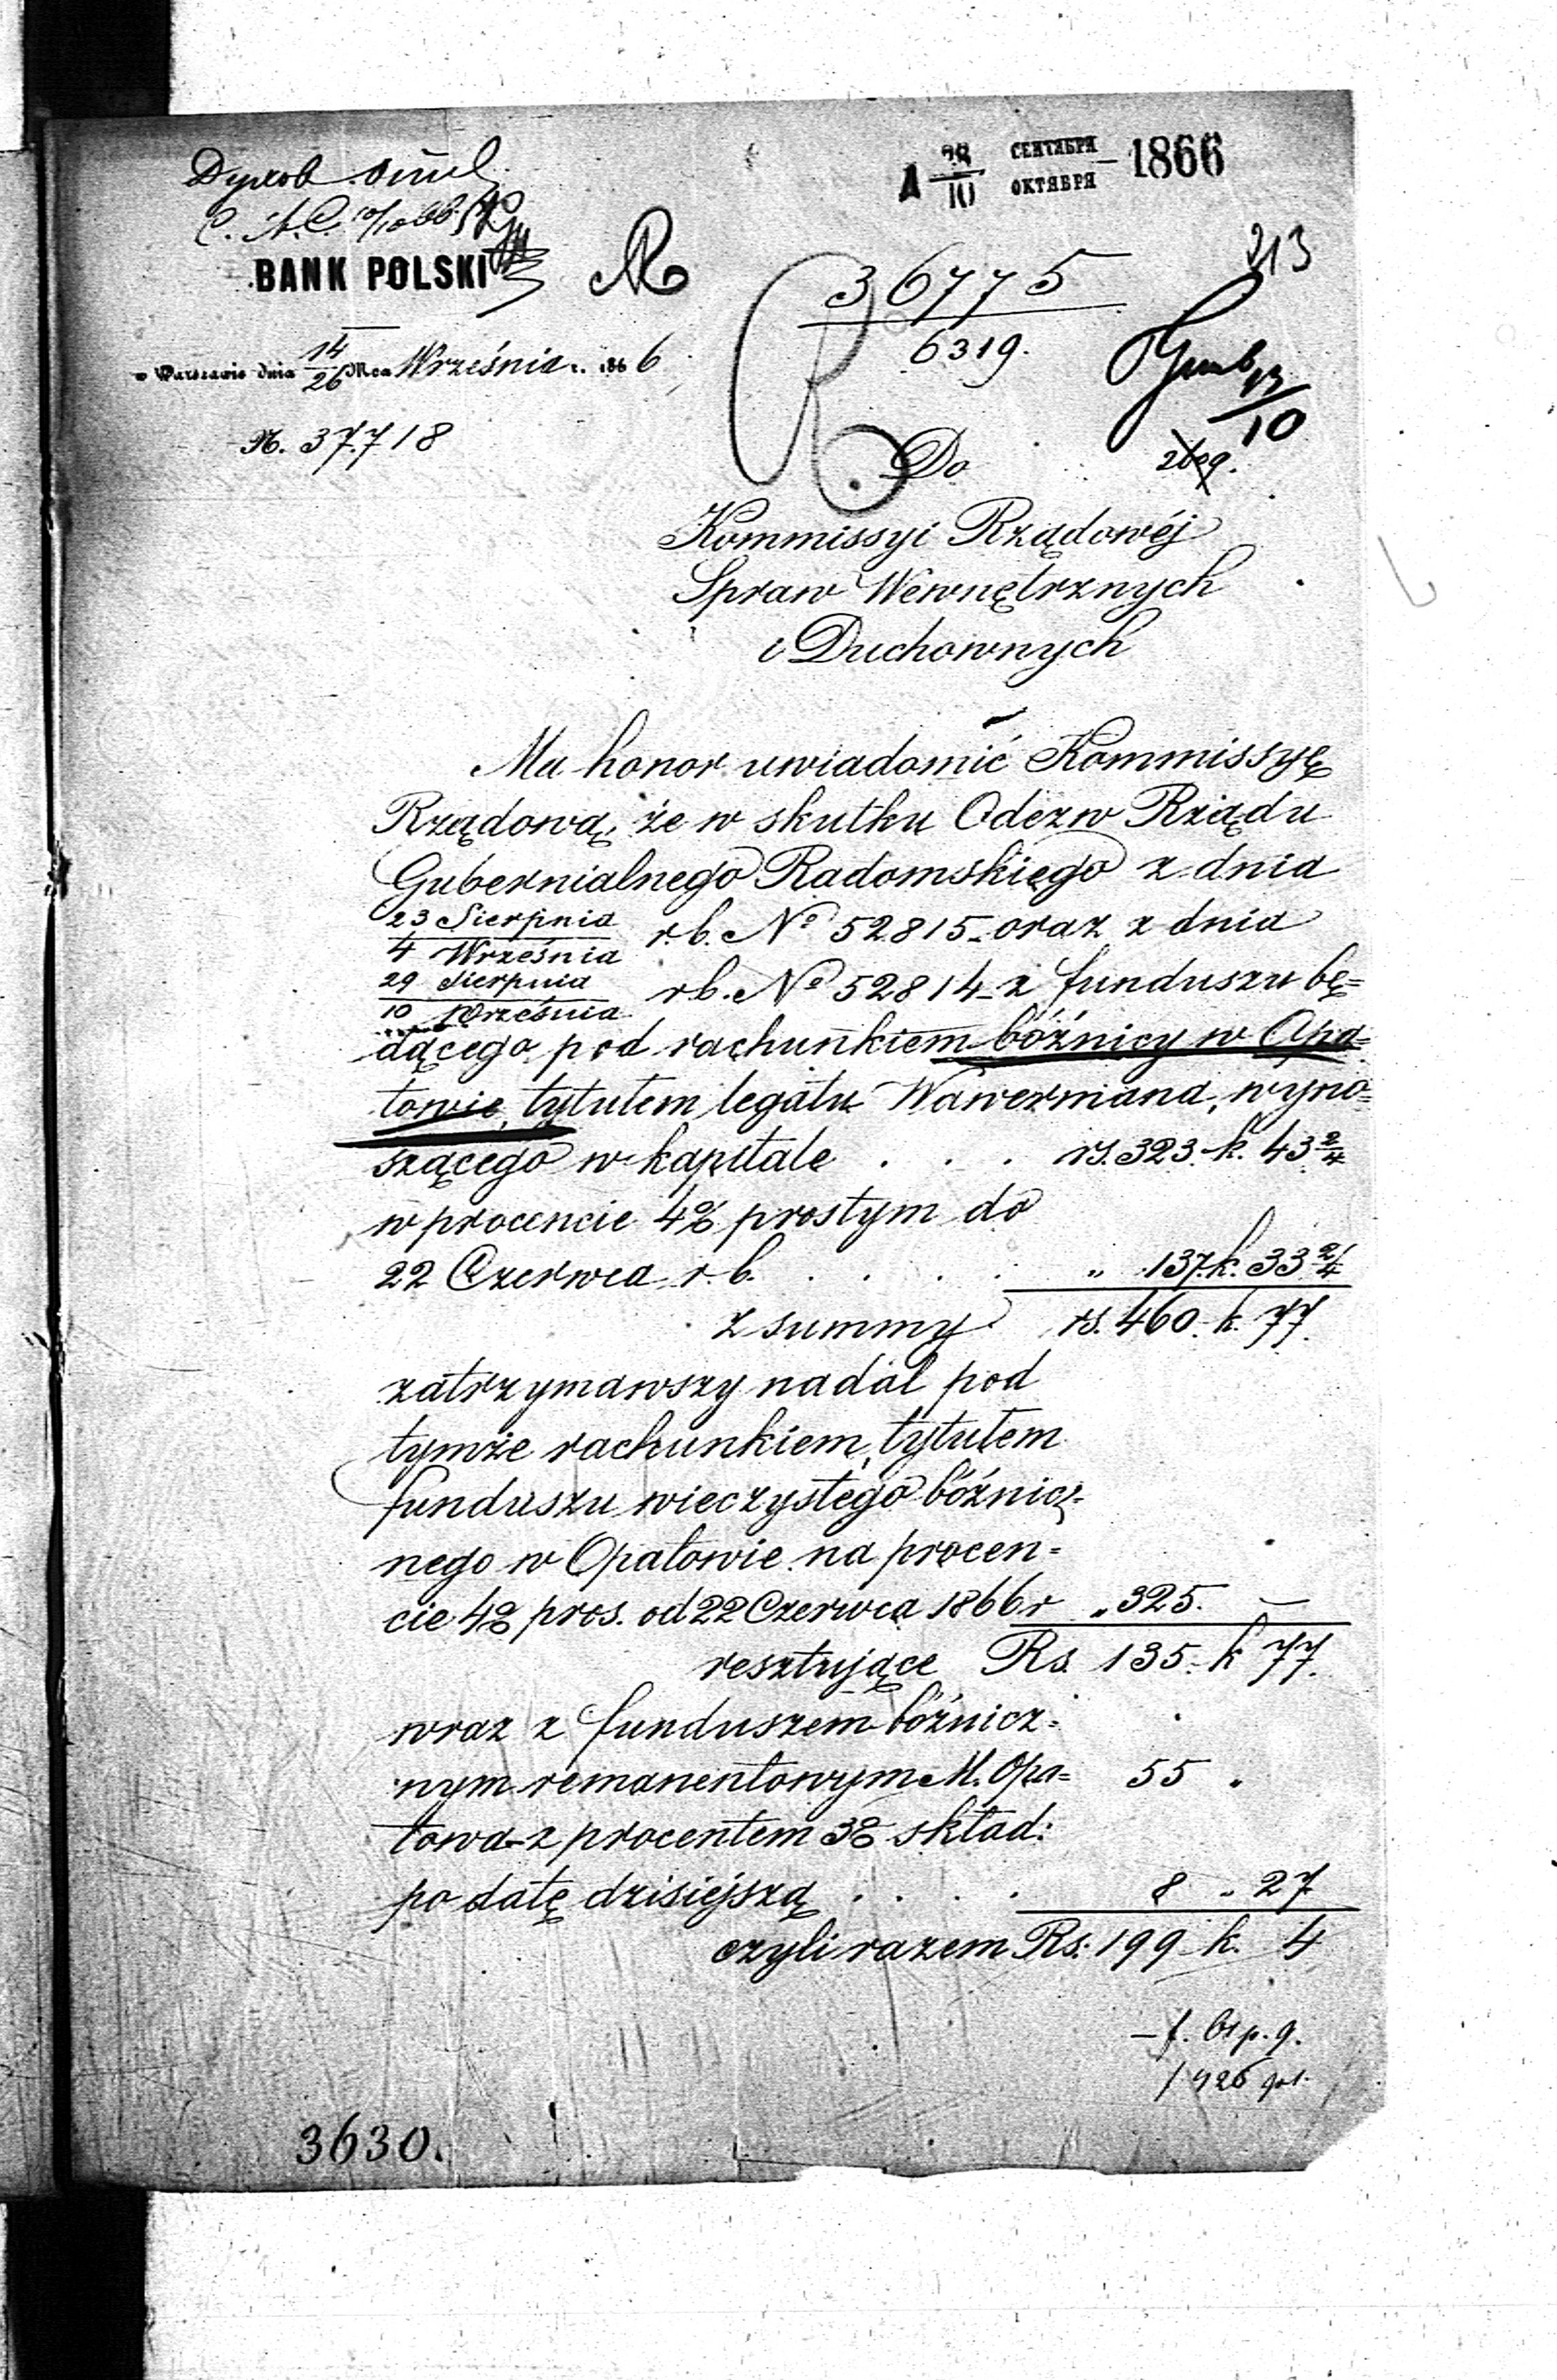 Духов. отд.
Д 28/10 СЕНТЯБРЯ ОКТЯБРЯ 1866
213
BANK POLSKI
36775
6319.
w Warszawie dnia 14/26 Mca Września r. 1866
13/10
N. 37718
Do
Kommissyi Rządowéj
Spraw Wewnętrznych
i Duchownych
Ma honor uwiadomić Kommissyę
Rządową, że w skutku Odezw Rządu
Gubernialnego Radomskiego z dnia
23 Sierpnia/4 Września r.b. No 52815 oraz z dnia
29 Sierpnia/10 Września r.b. No 52814 z funduszu bę=
dącego pod rachunkiem bóźnicy w Opa=
towie, tytułem legatu Wawermana, wyno=
szącego w kapitale . . . rs. 323. k. 43 2/4
w procencie 4% prostym do
22 Czerwca r.b. . . . . „ 137. k. 33 2/4
z summy rs. 460. k. 77.
zatrzymawszy nadal pod
tymże rachunkiem, tytułem
funduszu wieczystego bóźnicz=
nego w Opatowie na procen=
cie 4% pros. od 22 Czerwca 1866 r „ 325. —
resztujące Rs. 135. k 77.
wraz z funduszem bóźnicz=
nym remanentowym M. Opa= 55 „
towa z procentem 3% skład:
po datę dzisiejszą . . . . 8 „ 27
czyli razem Rs. 199 k. 4
3630.